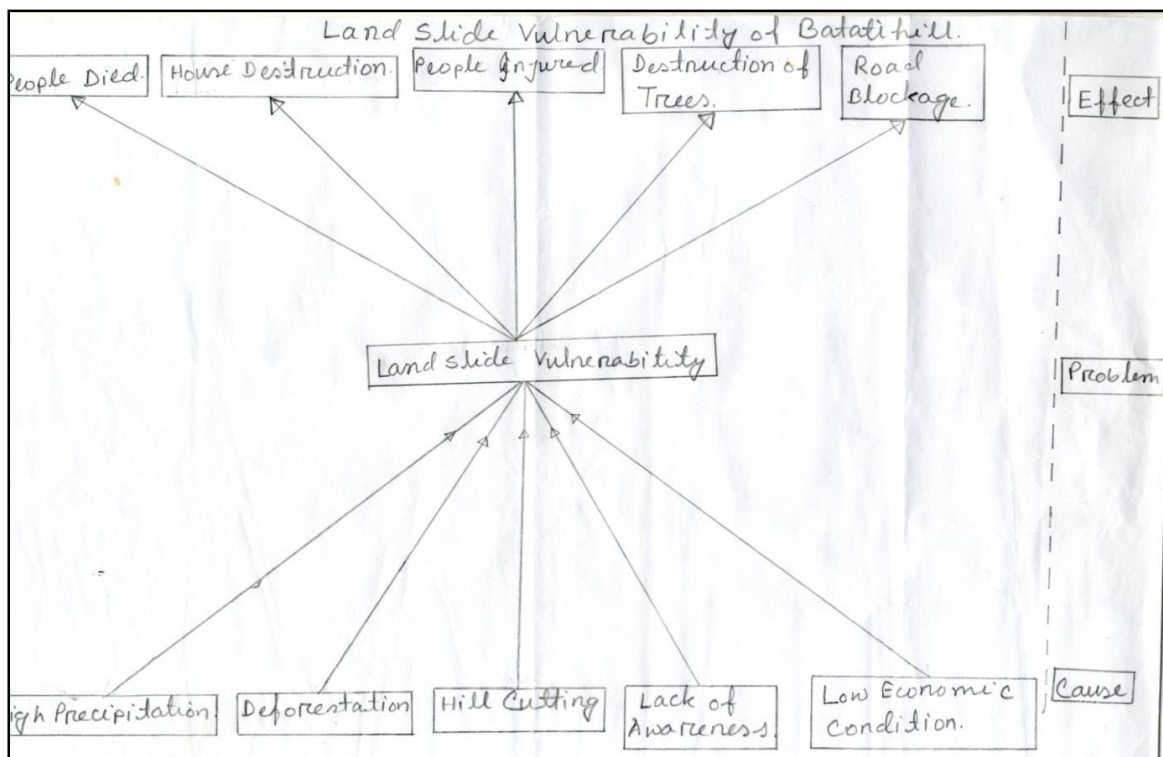 Land Slide Vulnerability of Batati hill.
People Died.
House Destruction.
People Injured
Destruction of
Trees.
Road
Blockage.
Effect
Land slide Vulnerabitity
Problem
High Precipitation.
Deforestation
Hill Cutting
Lack of
Awareness.
Low Economic
Condition.
Cause